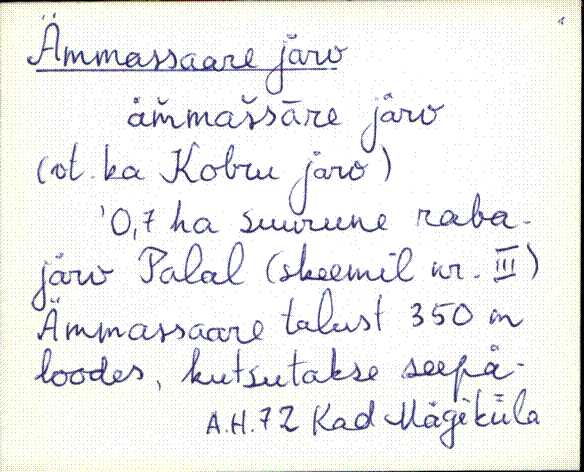 Ämmassaare järv
ämmaššāre järv
(vt. ka Kobru järv)
0,7 ha suurune raba-
järv Palal (skeemil nr. III)
Ämmassaare talust 350 m
loodes, kutsutakse seepä-
A.H.72 Kad Mägiküla